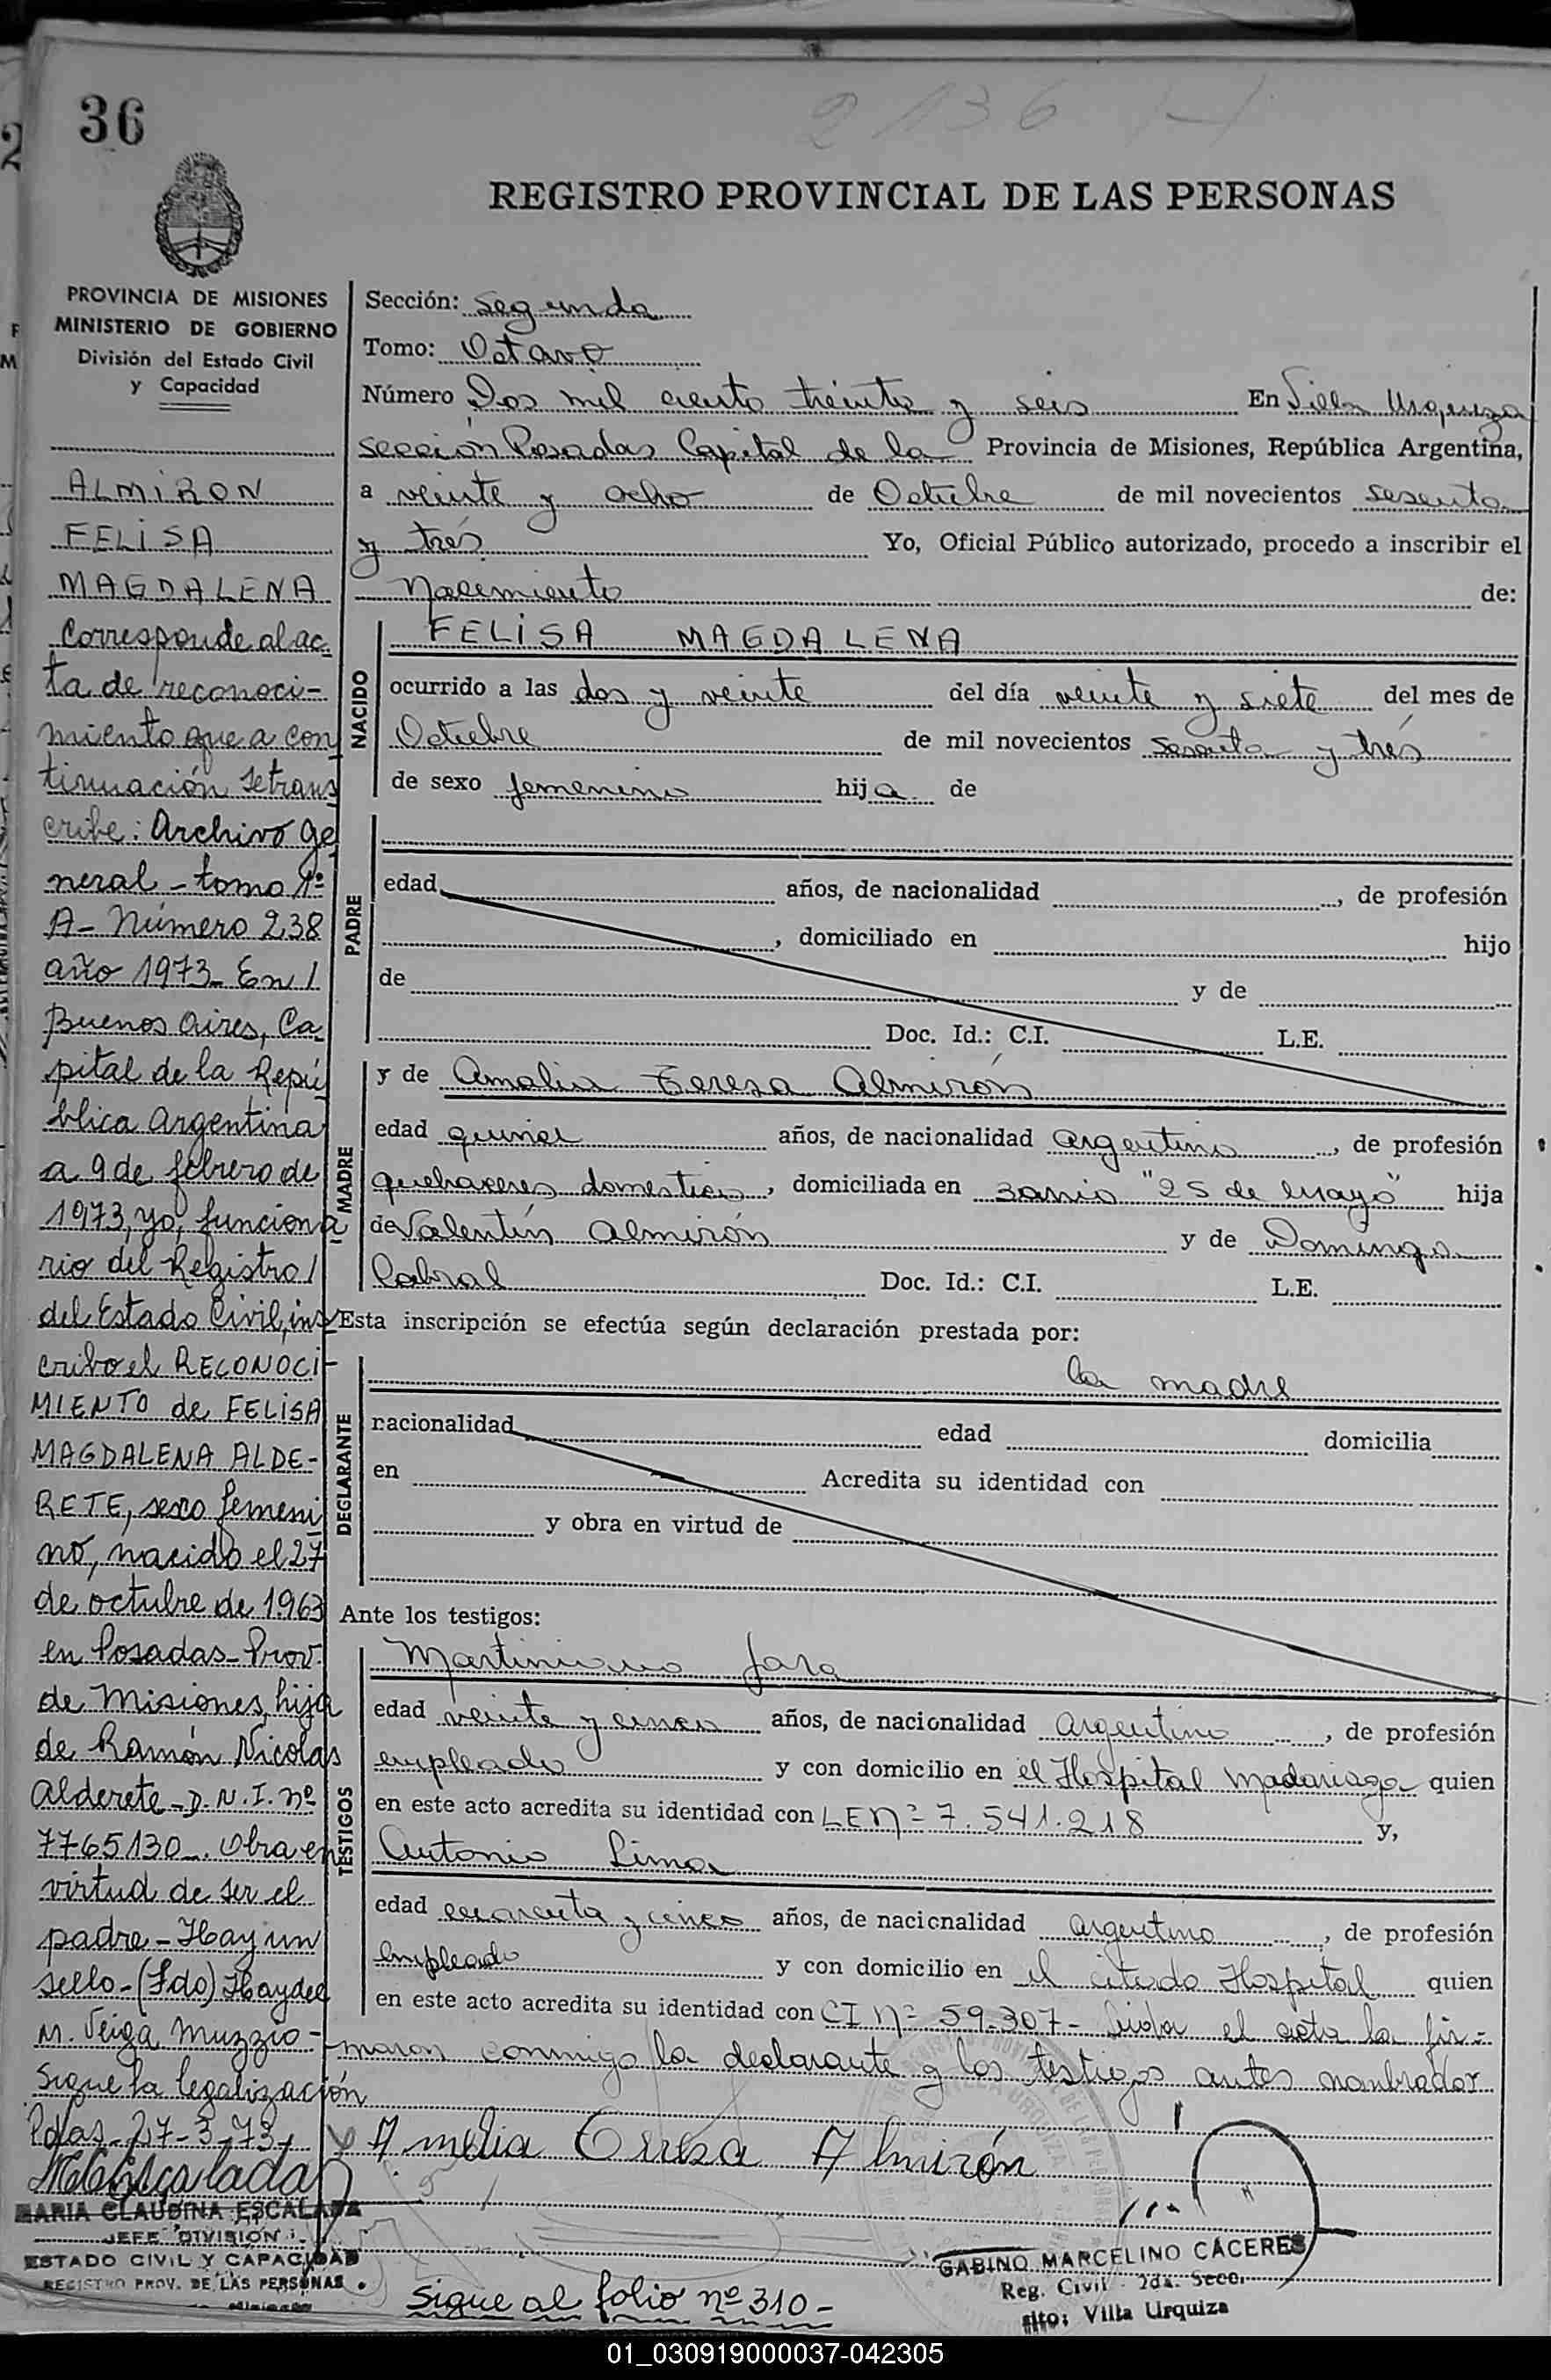 36
2136
REGISTRO PROVINCIAL DE LAS PERSONAS
PROVINCIA DE MISIONES
MINISTERIO DE GOBIERNO
División del Estado Civil
y Capacidad
ALMIRON
FELISA
MAGDALENA
Corresponde al ac-
ta de reconoci-
miento que a con
tinuación se trans
cribe: Archivo Ge
neral - tomo 1º
A - Número 238
año 1973 - En /
Buenos Aires, Ca
pital de la Repú
blica Argentina
a 9 de febrero de
1973, yo, funciona
rio del Registro /
del Estado Civil, ins
cribo el RECONOCI-
MIENTO de FELISA
MAGDALENA ALDE-
RETE, sexo femeni
no, nacido el 27
de octubre de 1963
en Posadas - Prov.
de Misiones, hija
de Ramón Nicolas
Alderete - D.N.I. nº
7765130 - Obra en
virtud de ser el
padre - Hay un
sello - (Fdo) Haydee
M. Veiga Muzzio -
Sigue la legalización
Pdas. 27-3-73
MARIA CLAUDINA ESCALADA
JEFE DIVISION
ESTADO CIVIL Y CAPACIDAD
REGISTRO PROV. DE LAS PERSONAS
Sección: Segunda
Tomo: Octavo
Número Dos mil ciento treinta y seis En Villa Urquiza
Sección Posadas Capital de la Provincia de Misiones, República Argentina,
a veinte y ocho de Octubre de mil novecientos sesenta
y trés Yo, Oficial Público autorizado, procedo a inscribir el
Nacimiento de:
NACIDO
FELISA MAGDALENA
ocurrido a las dos y veinte del día veinte y siete del mes de
Octubre de mil novecientos sesenta y trés
de sexo femenino hija de
PADRE
edad años, de nacionalidad , de profesión
, domiciliado en hijo
de y de
Doc. Id.: C.I. L.E.
MADRE
y de Amalia Teresa Almirón
edad quince años, de nacionalidad argentina, de profesión
quehaceres domesticos, domiciliada en Barrio "25 de Mayo" hija
de Valentín Almirón y de Dominga
Cabral Doc. Id.: C.I. L.E.
Esta inscripción se efectúa según declaración prestada por:
DECLARANTE
la madre
nacionalidad edad domicilia
en Acredita su identidad con
y obra en virtud de
Ante los testigos:
TESTIGOS
Martiniano Jara
edad veinte y cinco años, de nacionalidad argentino, de profesión
empleado y con domicilio en el Hospital Madariaga quien
en este acto acredita su identidad con LE nº 7.541.218 y,
Antonio Lima
edad cuarenta y cinco años, de nacionalidad argentino, de profesión
empleado y con domicilio en el citado Hospital quien
en este acto acredita su identidad con CI nº 59.307 - Leida el acta la fir-
maron conmigo la declarante y los testigos antes nombrados
Amelia Teresa Almirón
GABINO MARCELINO CÁCERES
Reg. Civil 2da. Secc.
Villa Urquiza
Sigue al folio nº 310 -
01_030919000037-042305